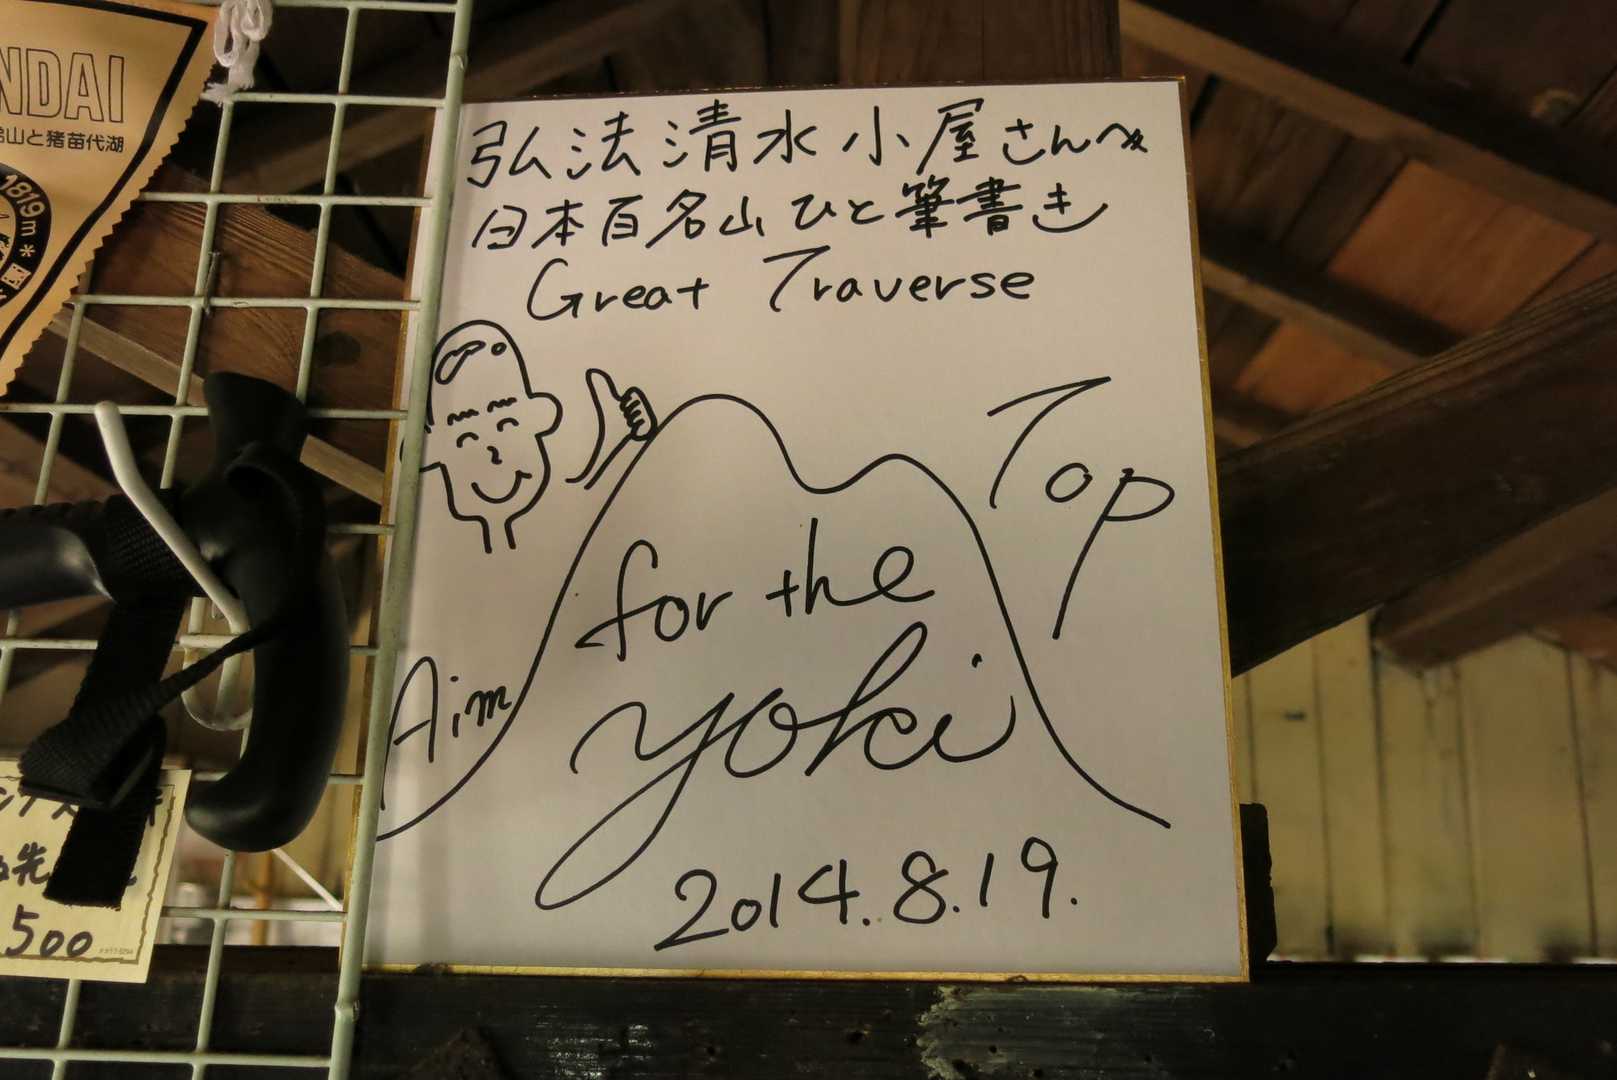 NDAI
山と猪苗代湖
1819m*
弘法清水小屋さんへ
日本百名山ひと筆書き
Great Traverse
Top
for the
Aim
yoki
2014.8.19.
先
500